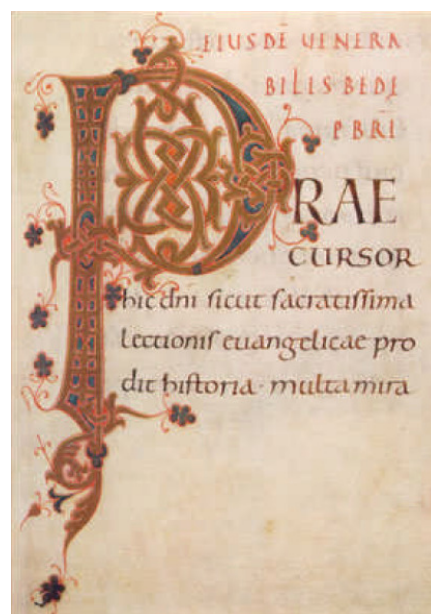 EIUSDĒ UENERA
BILIS BEDĘ
PBRI
PRAE
CURSOR
hic dni sicut sacratissima
lectionis euangelicae pro
dit historia · multa mira